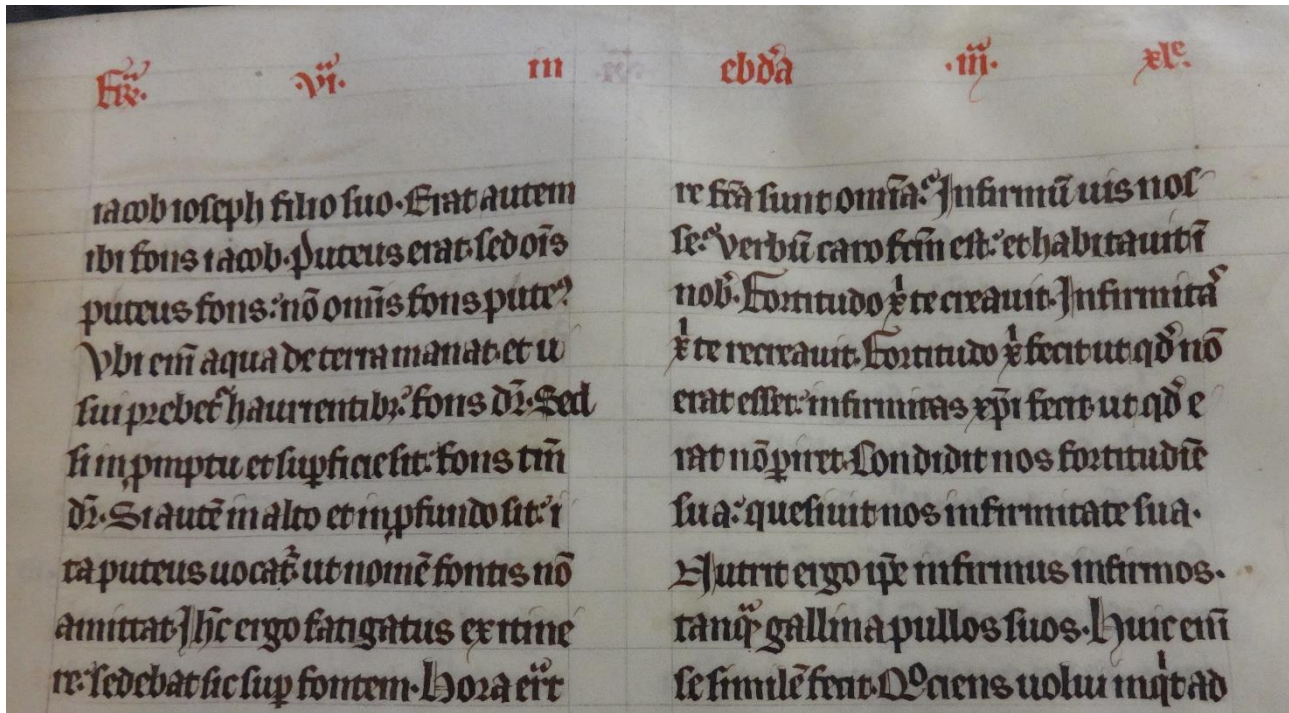 Fr̄e. ·vi· in ebd̄a ·iii· xle.
iacob ioseph filio suo. Erat autem
ibi fons iacob. Puteus erat. sed oīs
puteus fons: nō omīs fons puteꝰ.
Vbi eī aqua de terra manat. et u
sui prebet᷑ haurientibꝫ: fons dr̄. Sed
si in ꝓmptu et suꝑficie sit: fons tm̄
dr̄. Si autē in alto et in ꝓfundo sit: i
ta puteus uocat᷑. ut nomē fontis nō
amittat. Ihc̄ ergo fatigatus ex itine
re: sedebat sic suꝑ fontem. Hora erͣt
re fc̄a sunt omīa: Infirmū uis nos
se: Verbū caro fcm̄ est: et habitauit ī
nob᷒. Fortitudo xͥ te creauit. Infirmitaᷤ
xͥ te recreauit. Fortitudo xͥ fecit ut qd̓ nō
erat esset: infirmitas xp̄i fecit ut qd̓ e
rat nō ꝑiret. Condidit nos fortitudīe
sua: quesiuit nos infirmitate sua.
Nutrit ergo ip̄e infirmus infirmos.
tanqͣ gallina pullos suos. Huic eī
se similē fecit. Qͦciens uolui inqͥt ad